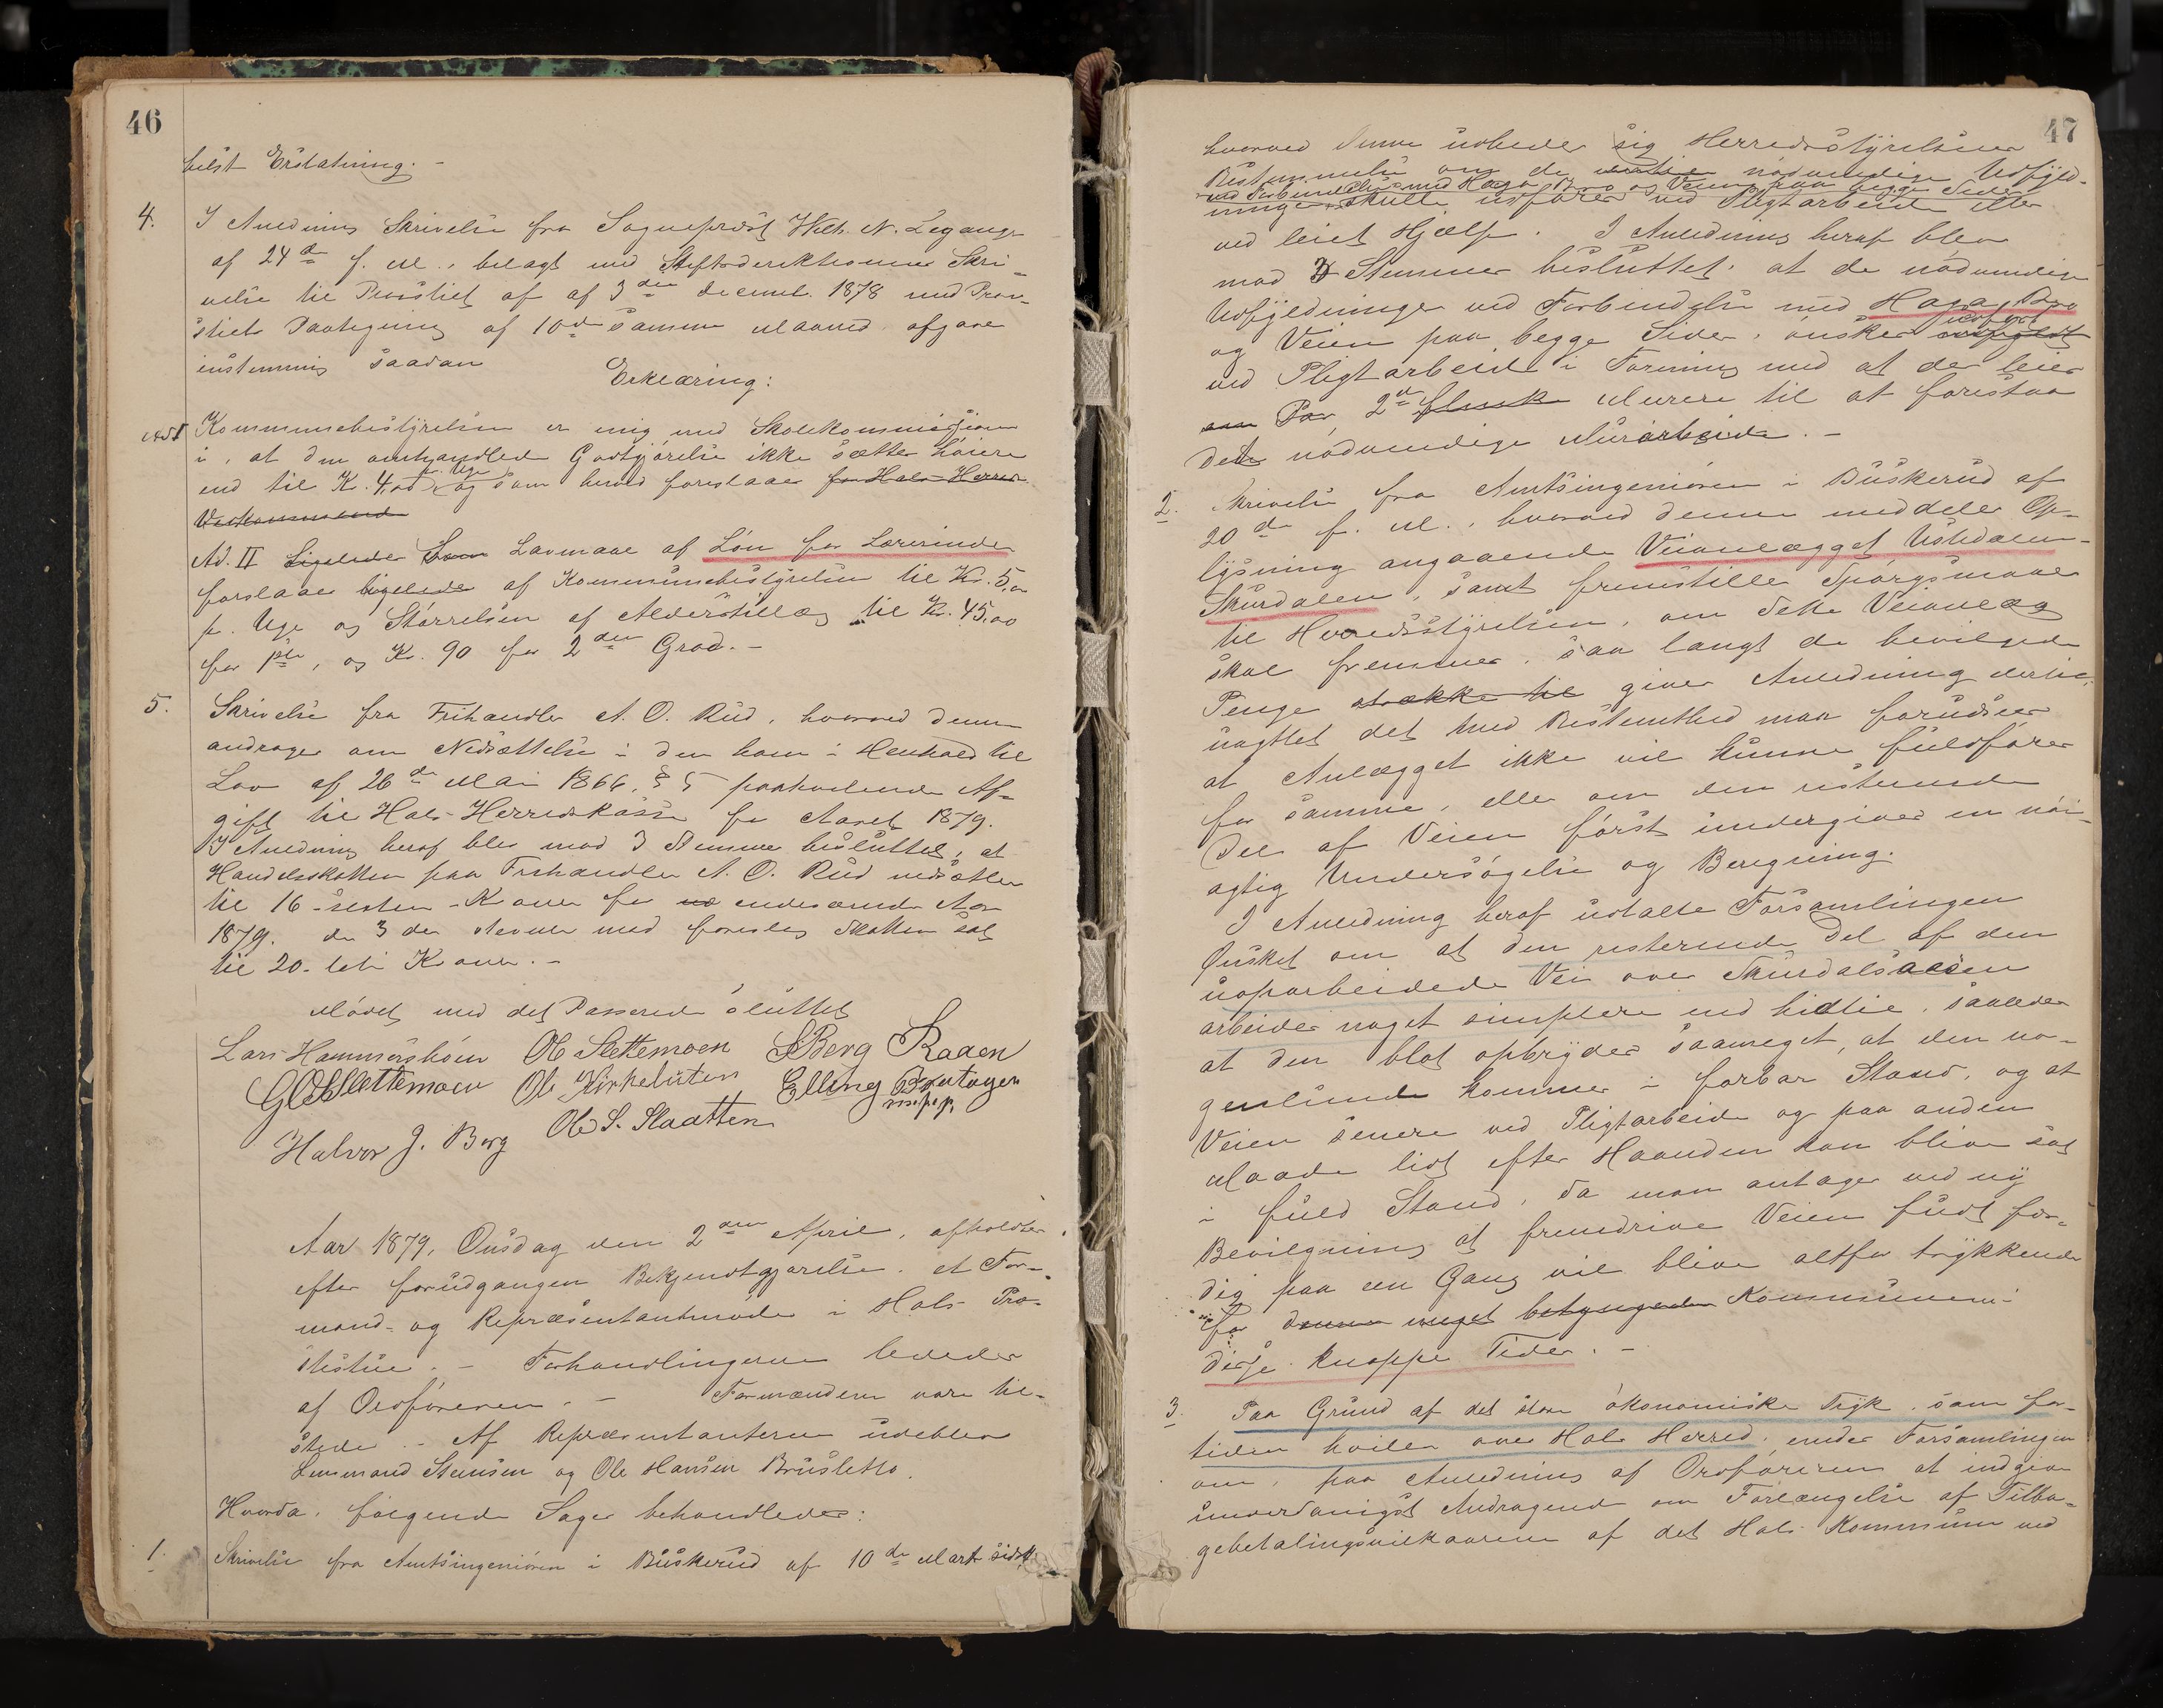 46
bilst Erstatning. -
4. I Anledning Skrivelse fra Sogneprest Wilh. N. Legangr
af 24de f. M., belagt med Stiftsdirektionens Skri-
velse til Provstiet af af 3die Decemb. 1878 med Prov-
stiets Paategning af 10de samme Maaned, afgaves
enstemmig saadan
Erklæring:
Ad I Kommunebestyrelsen er enig med Skolekommissionen
i, at den omhandlede Godtgjørelse ikke sættes høiere
pr. Uge
end til Kr. 4,00, og som herved foreslaaes for Hols Herred
Vedkommende
Ad. II Ligeledes Som Lavmaal af Løn for Lærerinder
foreslaaes ligeledes af Kommunebestyrelsen til Kr. 5,00
pr. Uge og Størrelsen af Alderstillæg til Kr. 45,00
for 1ste, og Kr. 90 for 2den Grad. -
5. Skrivelse fra Frihandler A. O. Rud, hvorved denne
andrager om Nedsættelse i den ham i Henhold til
Lov af 26de Mai 1866, § 5 paahvilende Af-
gift til Hols Herredskasse for Aaret 1879.
I Anledning heraf blev mod 3 Stemmer besluttet, at
Handelsskatten paa Frihandler A. O. Rud nedsættes
til 16 - sexten - Kroner for indeværende Aar
1879. de 3 der stemte mod foreslog Skatten sat
til 20 - tyve Kroner. -
Mødet med det Passerede sluttet
Lars Hammersbøen Ole Slettemoen S Berg S Raaen
G O Slettemoen Ole Kirkeluten Elling Bratagen
m. p. p.
Halvor J. Berg Ole S. Slaatten
Aar 1879, Onsdag den 2den April, afholdtes
efter forudgangen Bekjendtgjørelse, et For-
mand- og Repræsentantmøde i Hols Præ-
stestue. - Forhandlingerne lededes
af Ordføreren. - Formændene vare til-
stede. - Af Repræsentanterne udeblev
Lensmand Steinsen og Ole Hansen Brusletto.
Hvorda følgende Sager behandledes:
1. Skrivelse fra Amtsingeniøren i Buskerud af 10de Marts sidstl.
47
hvorved denne udbeder sig Herredsstyrelsens
Bestemmelse om de nødvendige Udfyld-
ved Forbindelse med Haga Bro og Veien paa begge Sider
ninger skulle udføres ved Pligtarbeide eller
ved leiet Hjælp. I Anledning heraf blev
mod 3 Stemmer besluttet: at de nødvendige
Udfyldninger ved Forbindelse med Haga Bro
udført
og Veien paa begge Sider, ønskes
ved Pligtarbeide i Forening med at der leies
Par 2de flinke Murere til at forestaa
det nødvendige Murarbeide. -
2. Skrivelse fra Amtsingeniøren i Buskerud af
20de f. M., hvorved denne meddeler Op-
lysning angaaende Veianlægget Ustedalen-
Skurdalen, samt fremstiller Spørgsmaal
til Herredsstyrelsen, om dette Veianlæg
skal fremmes, saa langt de bevilgede
Penge strækker til giver Anledning dertil,
uagtet det med Bestemthed maa forudsees
at Anlægget ikke vil kunne fuldføres
for samme, eller om den resterende
Del af Veien først undergives en nøi-
agtig Undersøgelse og Beregning.
I Anledning heraf udtalte Forsamlingen
Ønsket om at den resterende Del af den
uoparbeidede Vei over Skurdalsaasen
arbeides noget simplere end hidtil, saaledes
at den blot opbrydes saameget, at den no-
genlunde kommer i farbar Stand, og at
Veien senere ved Pligtarbeide og paa anden
Maade lidt efter Haanden kan blive sat
i fuld Stand, da man antager ved ny
Bevilgning at fremdrive Veien fuldt fær-
dig paa en Gang vil blive altfor trykkende
for denne meget betyngede Kommunen i
disse knappe Tider. -
3. Paa Grund af det store økonomiske Tryk, som for-
tiden hviler over Hols Herred, enedes Forsamlingen
om, paa Anledning af Ordføreren at indgive
underdanigst Andragende om Forlængelse af Tilba-
gebetalingsvilkaarene af det Hols Kommune ved